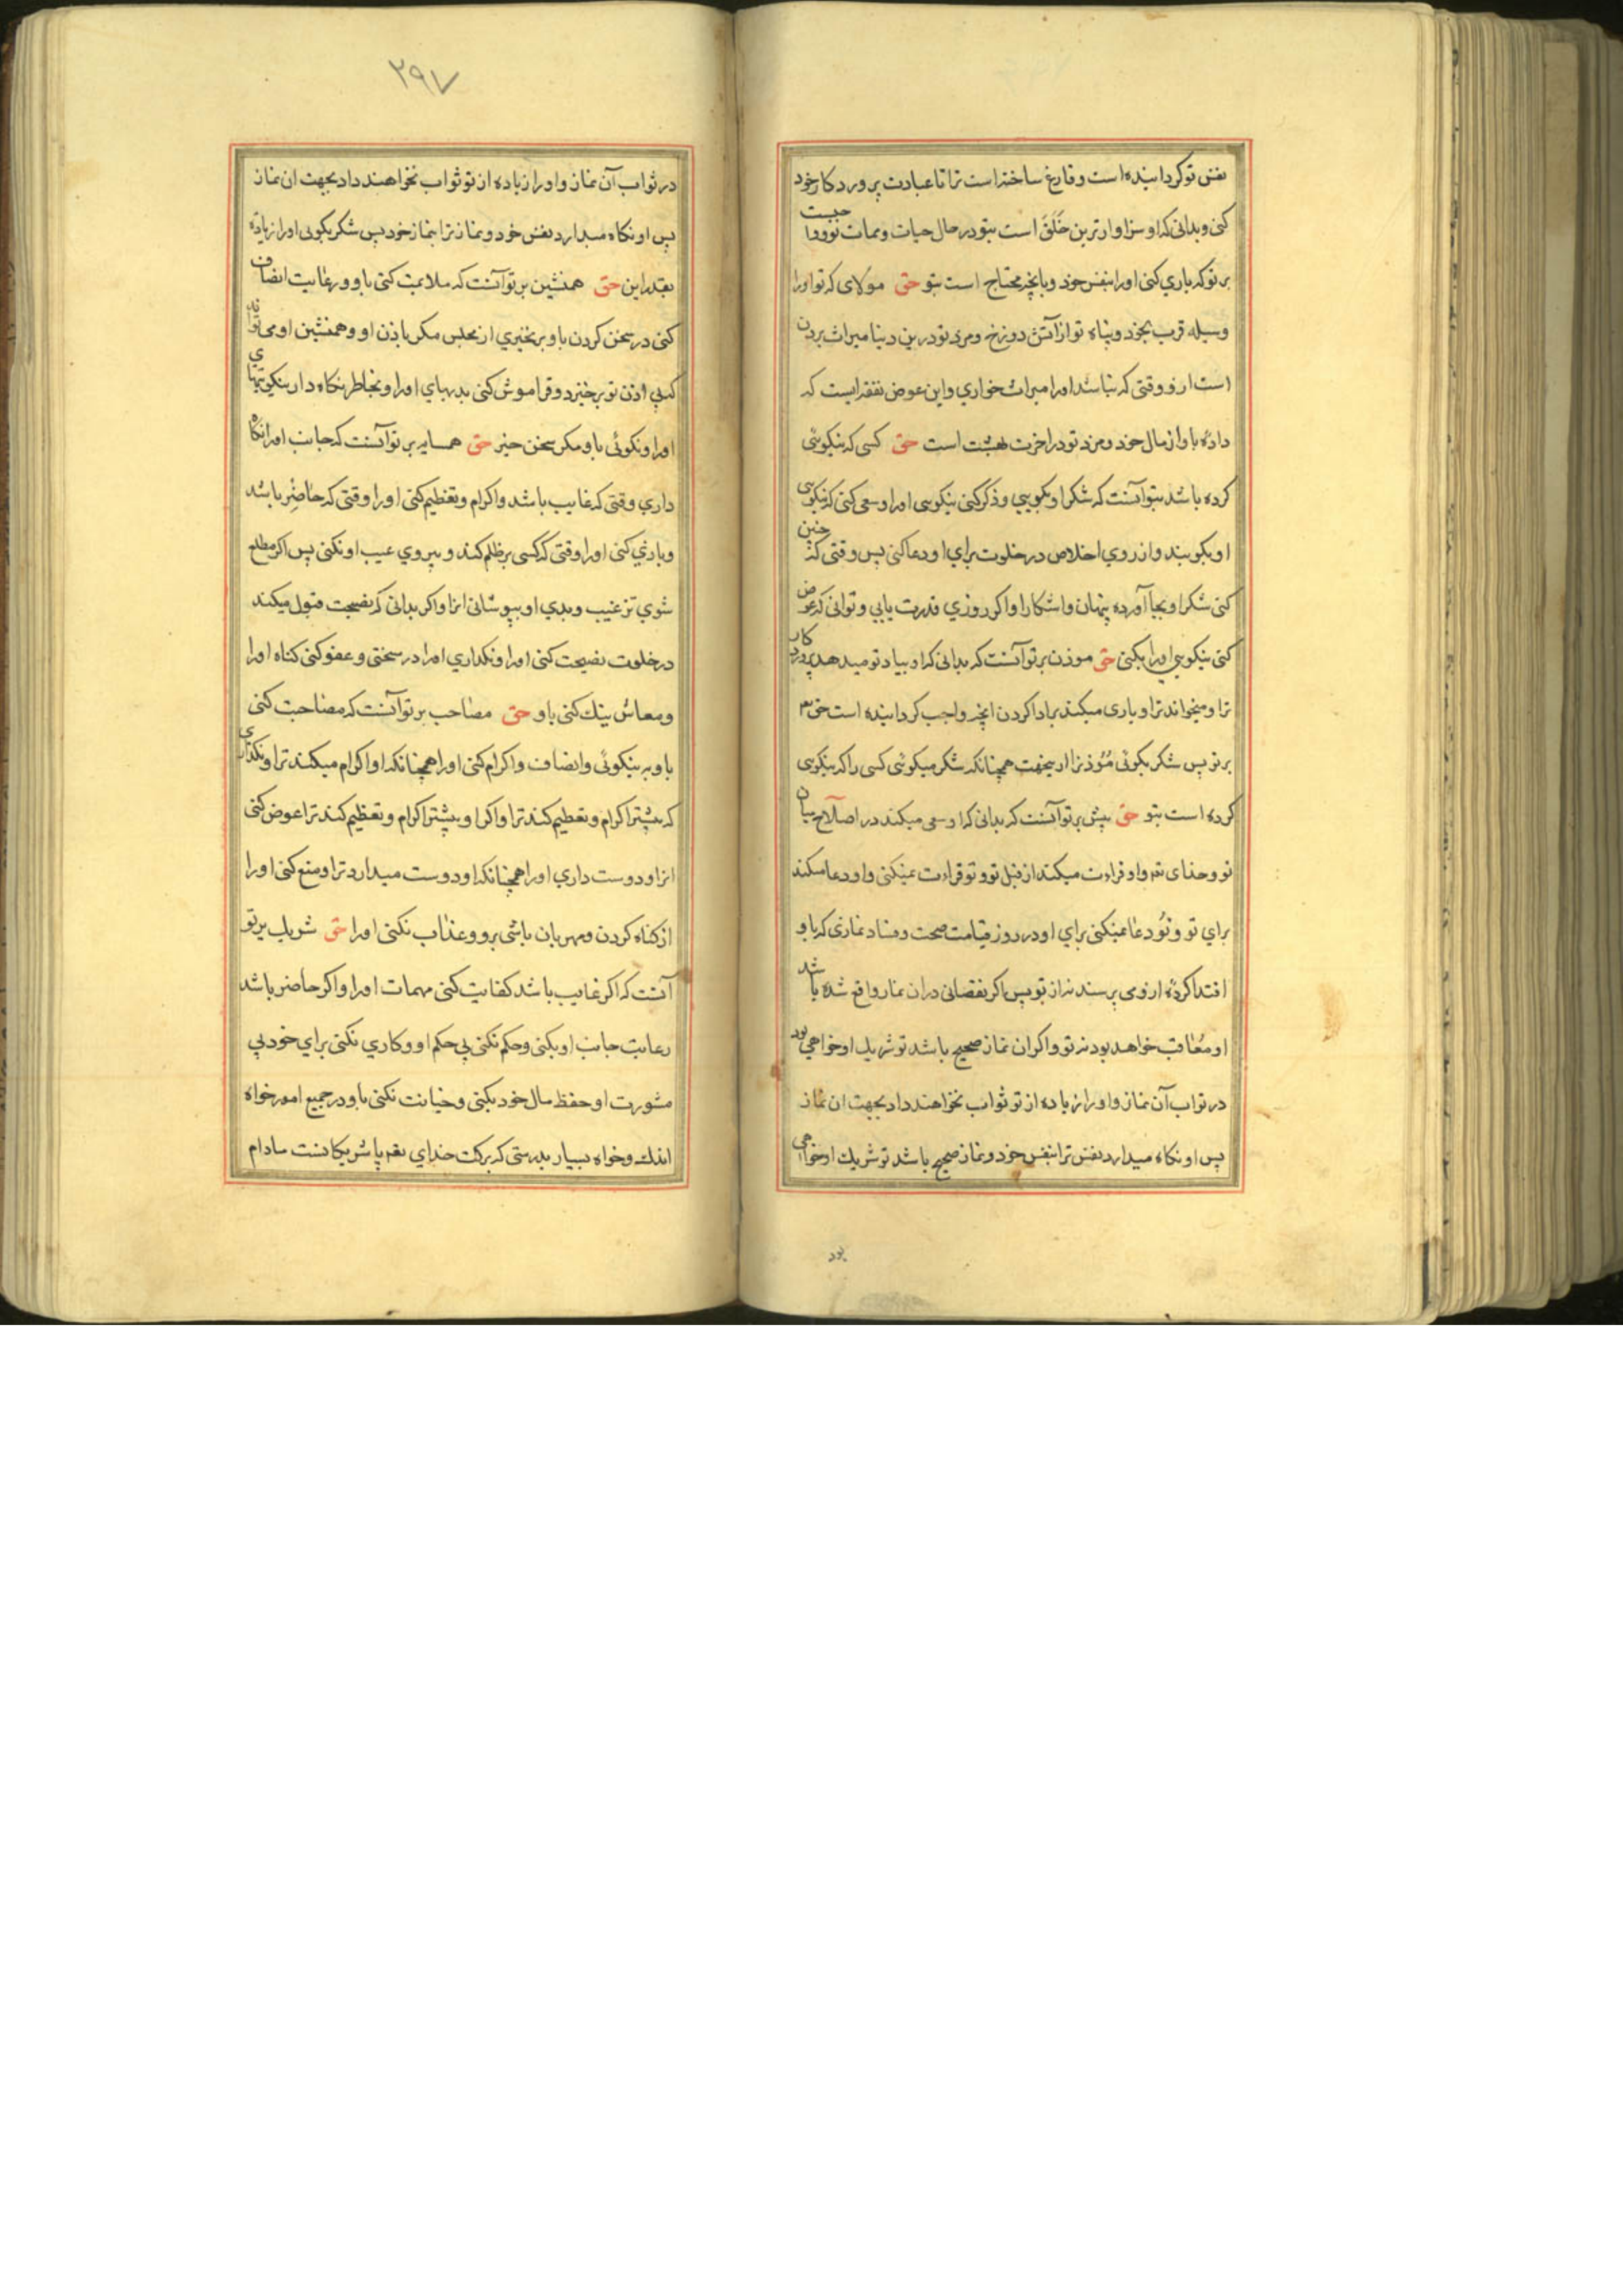 نفس تو کردانیده است و فارغ ساخته است ترا تا عبادت پروردکار خود
کنی و بدانی که او سزاوارترین خَلَقَ است بتو در حال حیات و ممات تو و واجبست
بر تو که یاری کنی او را بنفس خود و بانچه محتاج است بتو حق مولای که تو او را
وسیله قرب بخود و پناه تو از آتش دوزخ و مزد تو درین دنیا میراث بردن
است از و وقتی که نباشد او را میراث خواری و این عوض نفقه ایست که
دادهٔ باو از مال خود و مزد تو در اخرت بهشت است حق کسی که نیکوئی
کرده باشد بتو آنست که شکر او بکویی و ذکر کنی نیکویی او را و سعی کنی که نیکویی
او بکویند و از روی اخلاص در خلوت برای او دعا کنی پس وقتی که چنین
کنی شکر او بجا آورده پنهان و اشکارا و اکر روزی قدرت یابی و توانی که عوض
کنی نیکویی او را بکنی حق موذن بر تو آنست که بدانی که او بیاد تو میدهد پروردکار
ترا و میخواند ترا و یاری میکند بر ادا کردن انچه واجب کردانیده است حق
بر تو پس شکر بکوئی مُؤذنرا از ینجهت همچنانکه شکر میکوئی کسی را که نیکویی
کرده است بتو حق پیش بر تو آنست که بدانی که او سعی میکند در اصلاح میان
تو و خدای تعم و او قراءت میکند از قبل تو و تو قراءت نمیکنی و او دعا میکند
برای تو و تُو دعا نمیکنی برای او و در روز قیامت صحت و فساد نمازی که باو
اقتدا کردهٔ از وی پرسند نه از تو پس اکر نقصانی دران نماز واقع شده باشد
او معُاقب خواهد بود نه تو و اکر ان نماز صحیح باشد تو شریک او خواهی بود
در ثواب آن نماز و او را زیاده از تو ثواب نخواهند داد بجهت ان نماز
پس او نکاه میدارد نفس ترا بنفس خود و نماز صحیح باشد تو شریک او خواهی
بود
۲۹۷
در ثواب آن نماز و او را زیاده از تو ثواب نخواهند داد بجهت ان نماز
پس او نکاه میدارد نفس خود و نماز ترا بنماز خود پس شکر بکوئی او را زیاده
بقدر این حق همنشین بر تو آنست که ملایمت کنی باو و رعایت انصاف
کنی در سخن کردن باو و برنخیزی از مجلس مکر باذن او و همنشین او می تواند
که بی اذن تو برخیزد و فراموش کنی بدیهای او را و بخاطر نکاه داری نیکوئیهای
او را و نکوئی باو مکر سخن خیر حق همسایه بر تو آنست که جانب او را نکاه
داری وقتی که غایب باشد و اکرام و تعظیم کنی او را وقتی که حاضِر باشد
و یاری کنی او را وقتی که کسی بر ظلم کند و پیروی عیب او نکنی پس اکر مطلع
شوی ز عیب و بدی او بپوشانی انرا و اکر بدانی که نصیحت قبول میکند
در خلوت نصیحت کنی او را و نکذاری او را در سختی و عفو کنی کناه او را
و معاش نیک کنی باو حق مصاحب بر تو آنست که مصاحبت کنی
باو به نیکوئی و انصاف و اکرام کنی او را همچنانکه او اکرام میکند ترا و نکذاری
که بیشتر اکرام و تعظیم کند ترا و اکر او بیشتر اکرام و تعظیم کند ترا عوض کنی
انرا و دوست داری او را همچنانکه او دوست میدارد ترا و منع کنی او را
از کناه کردن و مهربان باشی برو و عذاب نکنی او را حق شریک بر تو
آنست که اکر غایب باشد کفایت کنی مهمات او را و اکر حاضر باشد
رعایت جانب او بکنی و حکم نکنی بی حکم او و کاری نکنی برای خود بی
مشورت او حفظ مال خود بکنی و خیانت نکنی باو در جمیع امور خواه
اندک و خواه بسیار بدرستی که برکت خدای تعم با شریکانست مادام